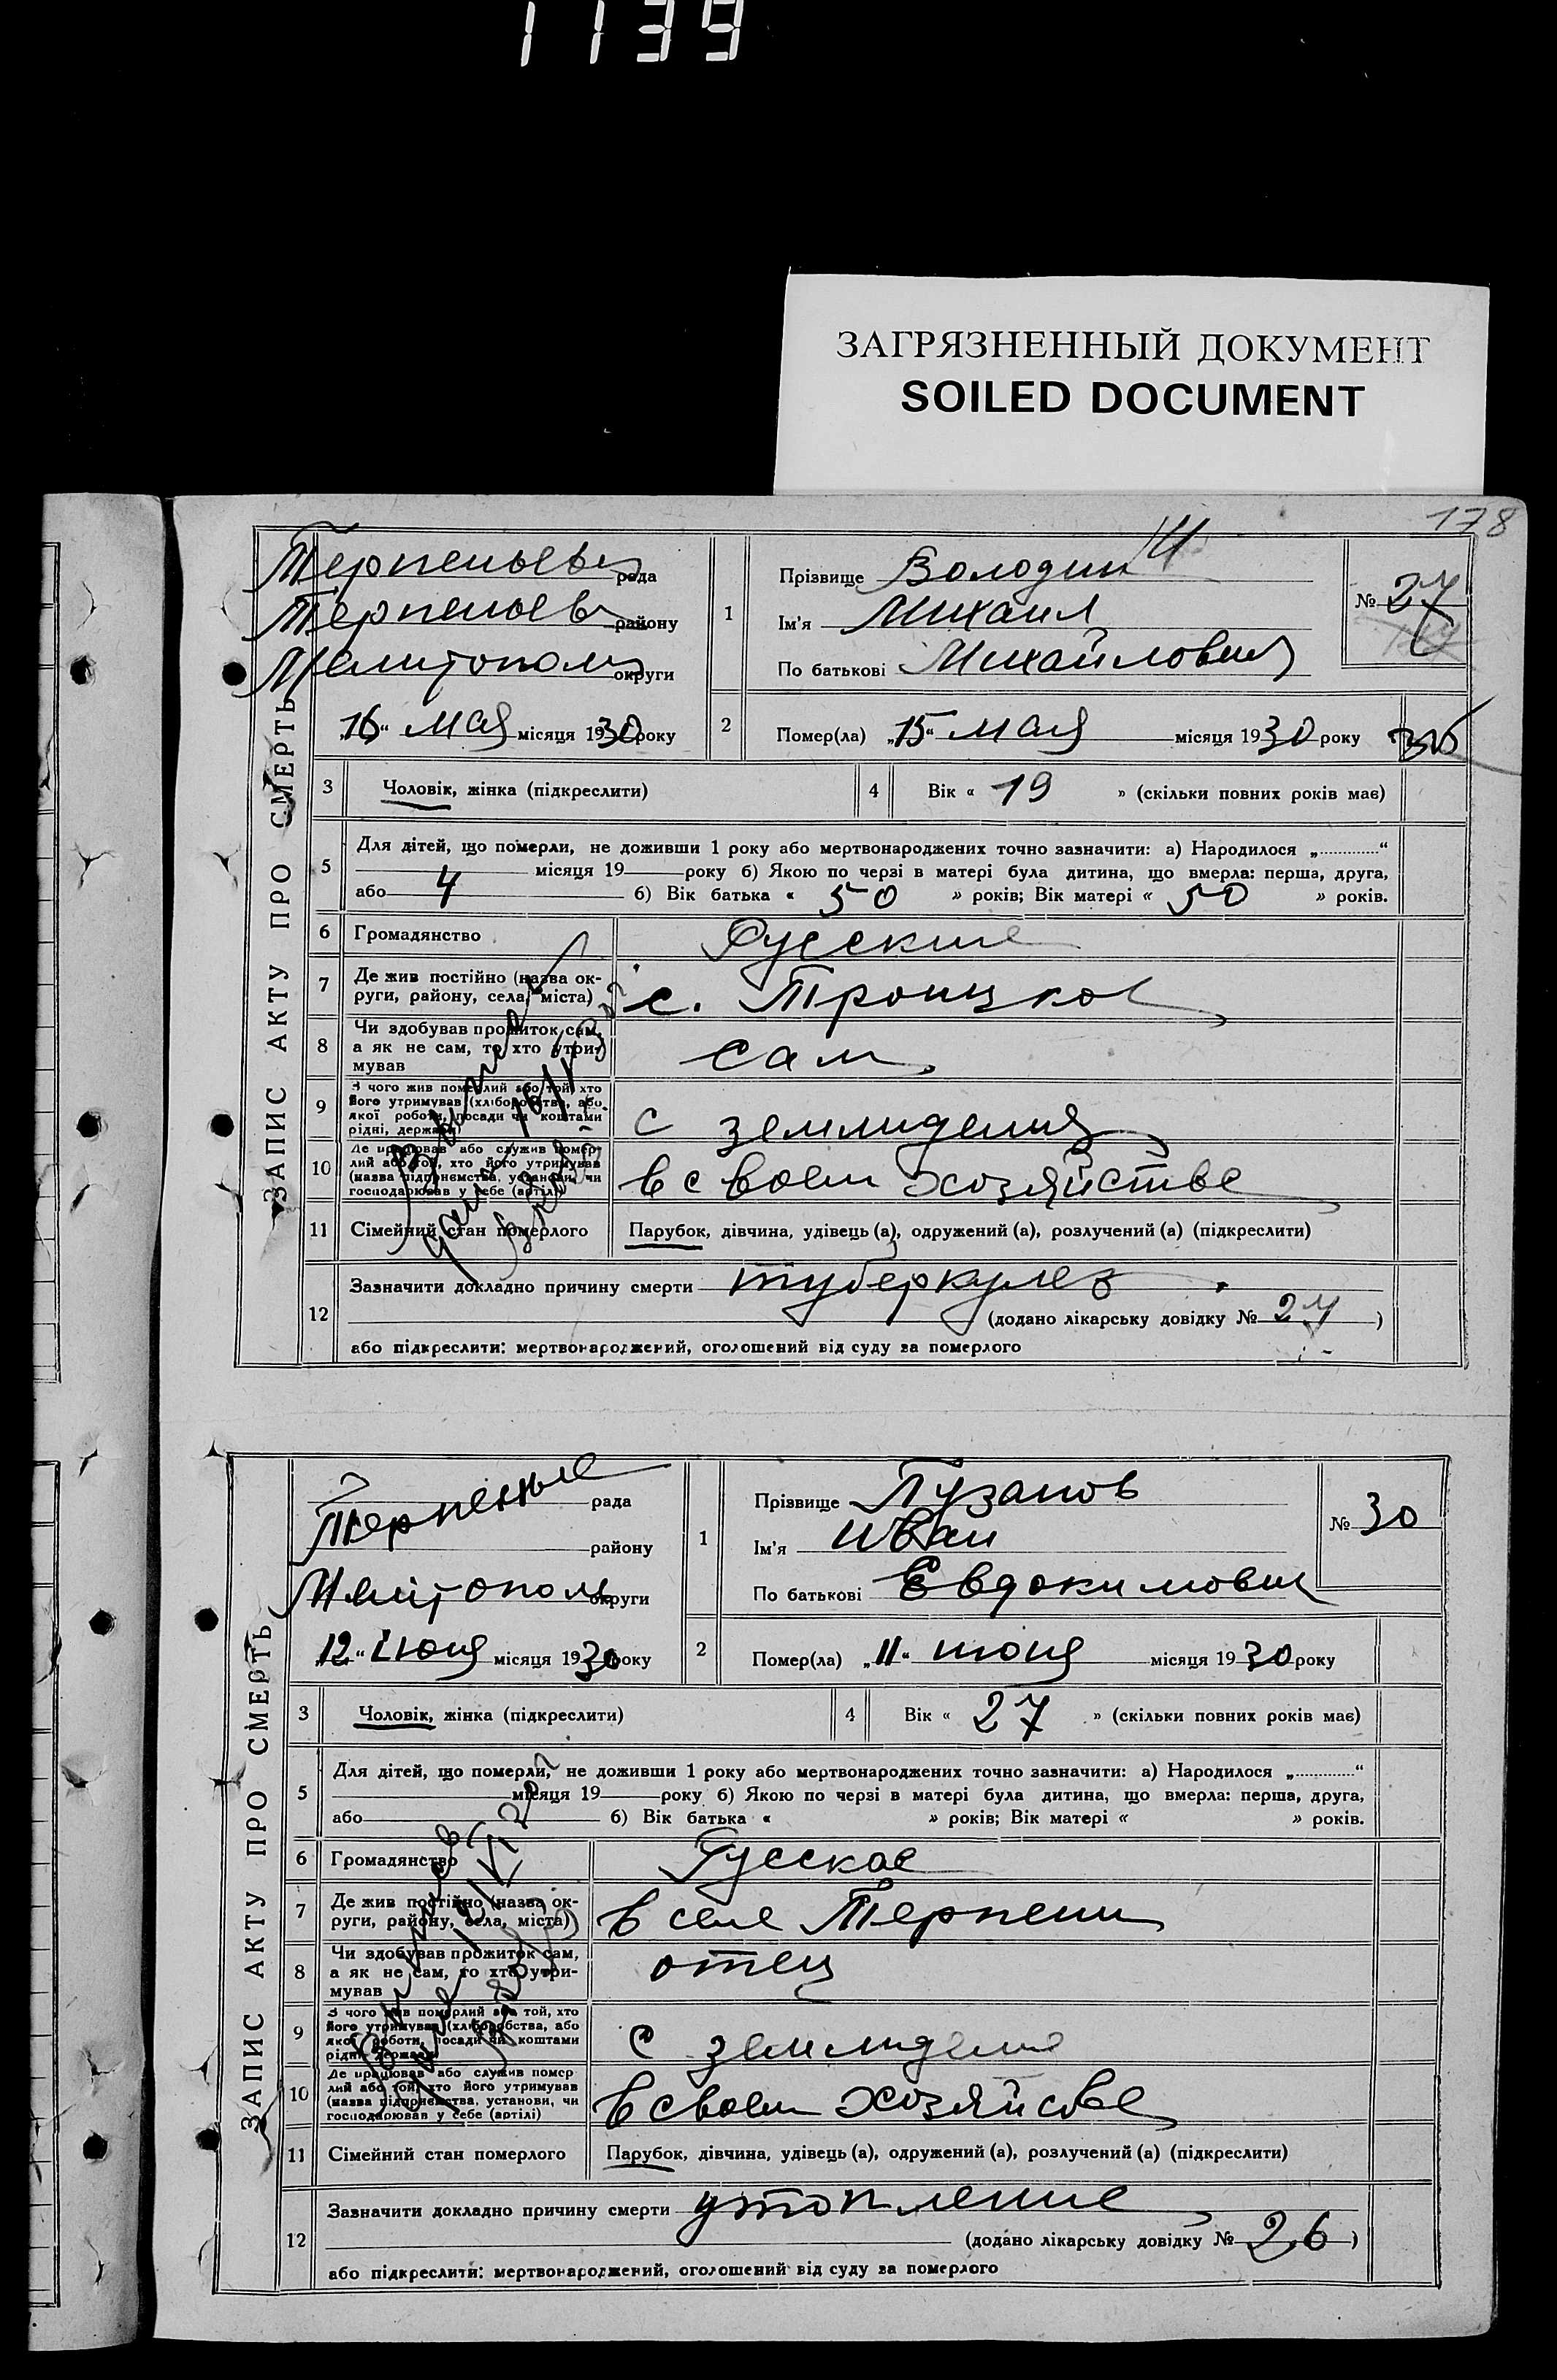 1139
ЗАГРЯЗНЕННЫЙ ДОКУМЕНТ
SOILED DOCUMENT
178
ЗАПИС АКТУ ПРО СМЕРТЬ
Терпеньев рада
Терпеньев району
Мелитополь округи
„16“ мая місяця 1930 року
1 Прізвище Володин
Ім'я Михаил
По батькові Михайлович
№ 27
2 Помер(ла) „15“ мая місяця 1930 року
3 Чоловік, жінка (підкреслити)
4 Вік « 19 » (скільки повних років має)
5 Для дітей, що померли, не доживши 1 року або мертвонароджених точно зазначити: а) Народилося „ “
місяця 19 року б) Якою по черзі в матері була дитина, що вмерла: перша, друга,
або 4 б) Вік батька « 50 » років; Вік матері « 50 » років.
6 Громадянство Русские
7 Де жив постійно (назва ок-
руги, району, села, міста) с. Троицкое
8 Чи здобував прожиток сам,
а як не сам, то хто утри-
мував сам
9 З чого жив померлий або той, хто
його утримував (хліборобства, або
якої роботи, посади чи коштами
рідні, держави) с земледелия
10 Де працював або служив помер-
лий або той, хто його утримував
(назва підприємства, установи, чи
господарював у себе (артілі) в своем хозяйстве
11 Сімейний стан померлого Парубок, дівчина, удівець (а), одружений (а), розлучений (а) (підкреслити)
12 Зазначити докладно причину смерти туберкулез
(додано лікарську довідку № 27 )
або підкреслити: мертвонароджений, оголошений від суду за померлого
ЗАПИС АКТУ ПРО СМЕРТЬ
Терпенье рада
району
Мелитополь округи
„12“ июня місяця 1930 року
1 Прізвище Пузанов
Ім'я Иван
По батькові Евдокимович
№ 30
2 Помер(ла) „11“ июня місяця 1930 року
3 Чоловік, жінка (підкреслити)
4 Вік « 27 » (скільки повних років має)
5 Для дітей, що померли, не доживши 1 року або мертвонароджених точно зазначити: а) Народилося „ “
місяця 19 року б) Якою по черзі в матері була дитина, що вмерла: перша, друга,
або б) Вік батька « » років; Вік матері « » років.
6 Громадянство Русское
7 Де жив постійно (назва ок-
руги, району, села, міста) в селе Терпени
8 Чи здобував прожиток сам,
а як не сам, то хто утри-
мував отец
9 З чого жив померлий або той, хто
його утримував (хліборобства, або
якої роботи, посади чи коштами
рідні, держави) с земледелие
10 Де працював або служив помер
лий або той, хто його утримував
(назва підприємства, установи, чи
господарював у себе (артілі) в своем хозяйстве
11 Сімейний стан померлого Парубок, дівчина, удівець (а), одружений (а), розлучений (а) (підкреслити)
12 Зазначити докладно причину смерти утопление
(додано лікарську довідку № 26 )
або підкреслити: мертвонароджений, оголошений від суду за померлого